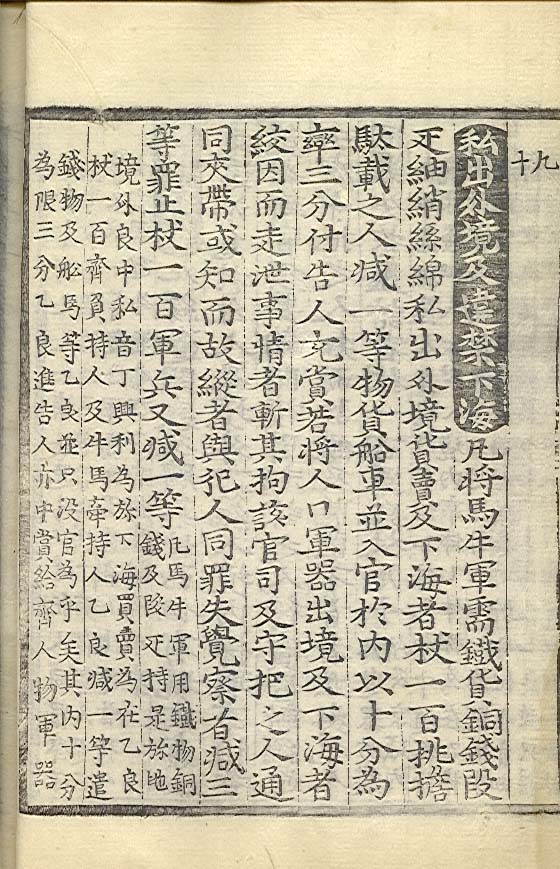 十九
私出外境及違禁下海 凡將馬牛軍需鐵貨銅錢段
疋紬綃絲綿私出外境貨賣及下海者杖一百挑擔
駄載之人减一等物貨船車並入官於內以十分為
率三分付告人充賞若將人口軍器出境及下海者
絞因而走泄事情者斬其拘該官司及守把之人通
同夾帶或知而故縱者與犯人同罪失覺察者减三
等罪止杖一百軍兵又减一等
凡馬牛軍用鐵物銅
錢及段疋持是旀他
境外良中私音丁興利為旀下海買賣為在乙良
杖一百齊負持人及牛馬牽持人乙良减一等遣
錢物及舩馬等乙良並只没官為乎矣其内十分
為限三分乙良進告人亦中賞給齊人物軍器